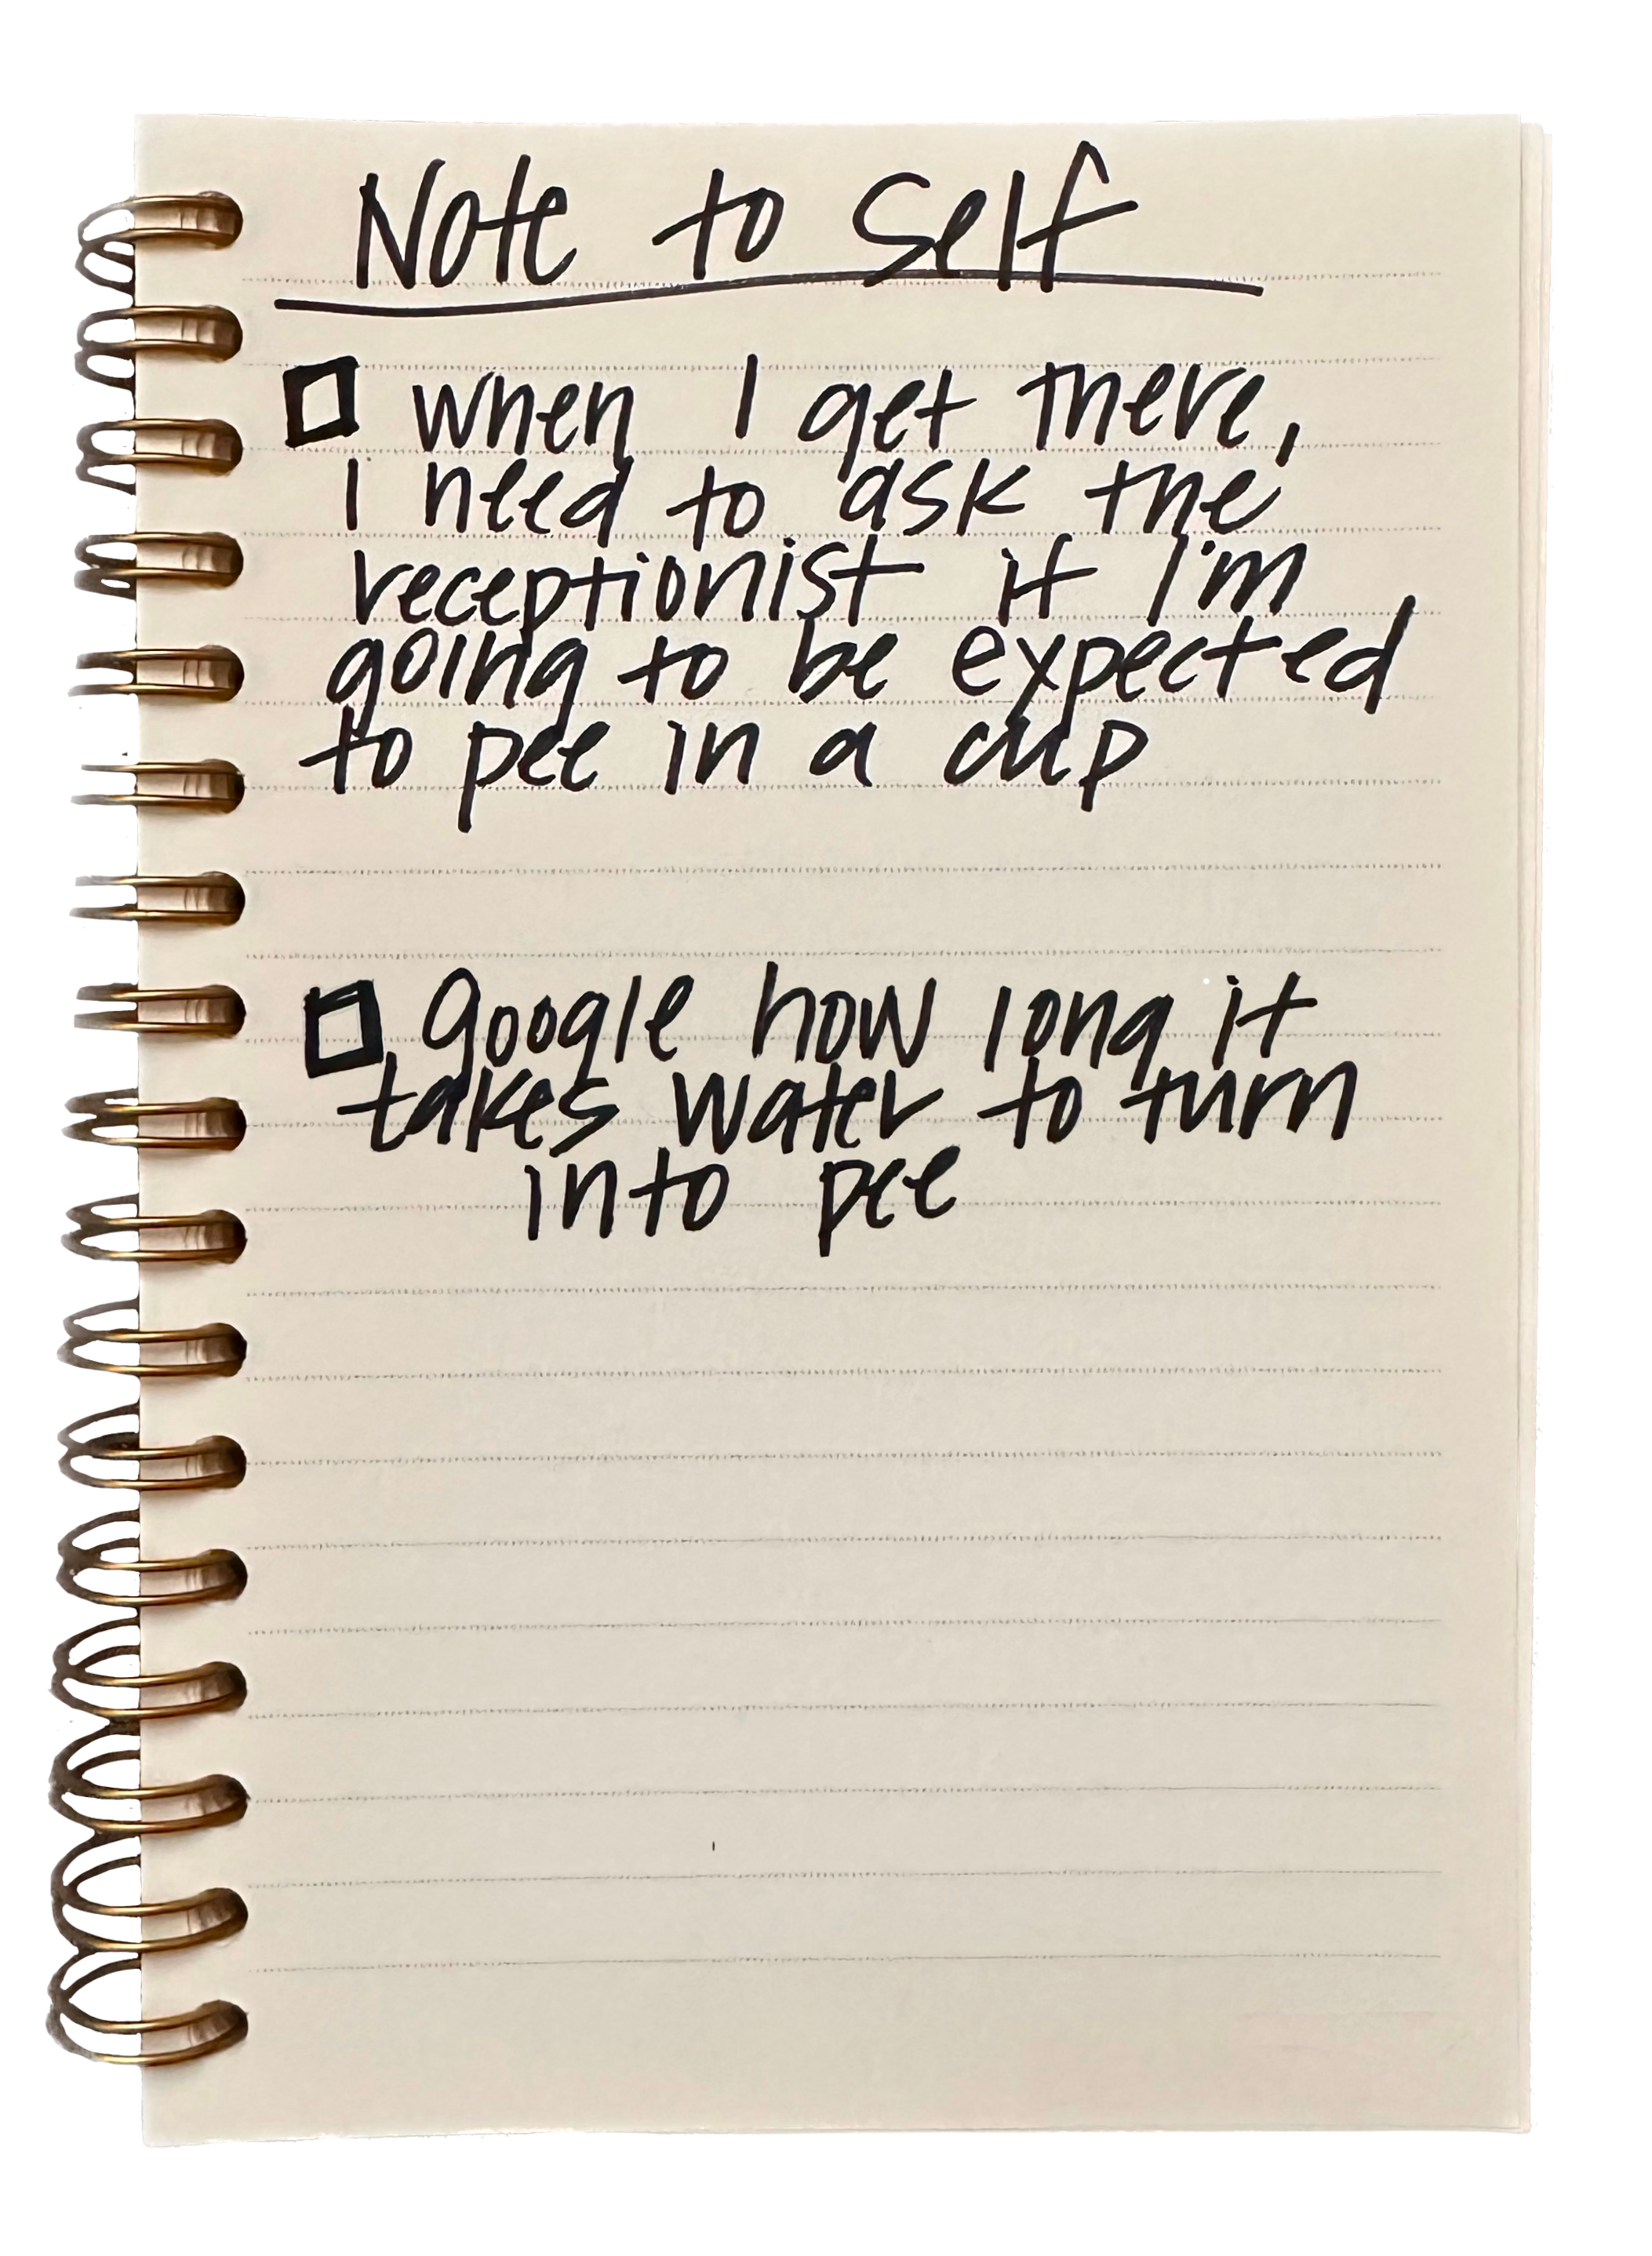 Note to Self
When I get there,
I need to ask the
receptionist if I'm
going to be expected
to pee in a cup
Google how long it
takes water to turn
into pee